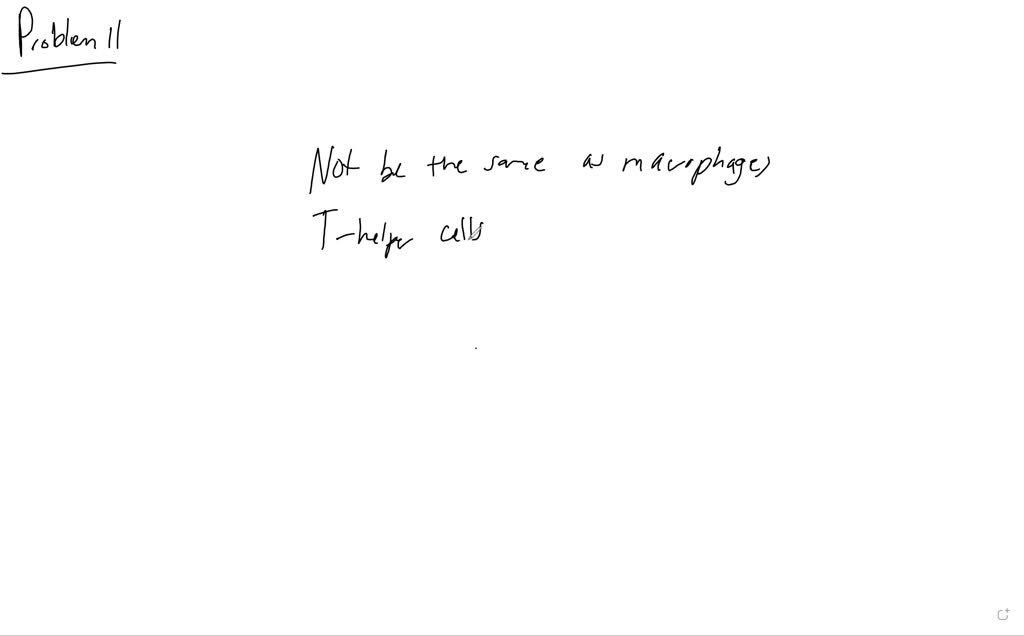 Problem 11
Not be the same as macrophages
T-helper cells